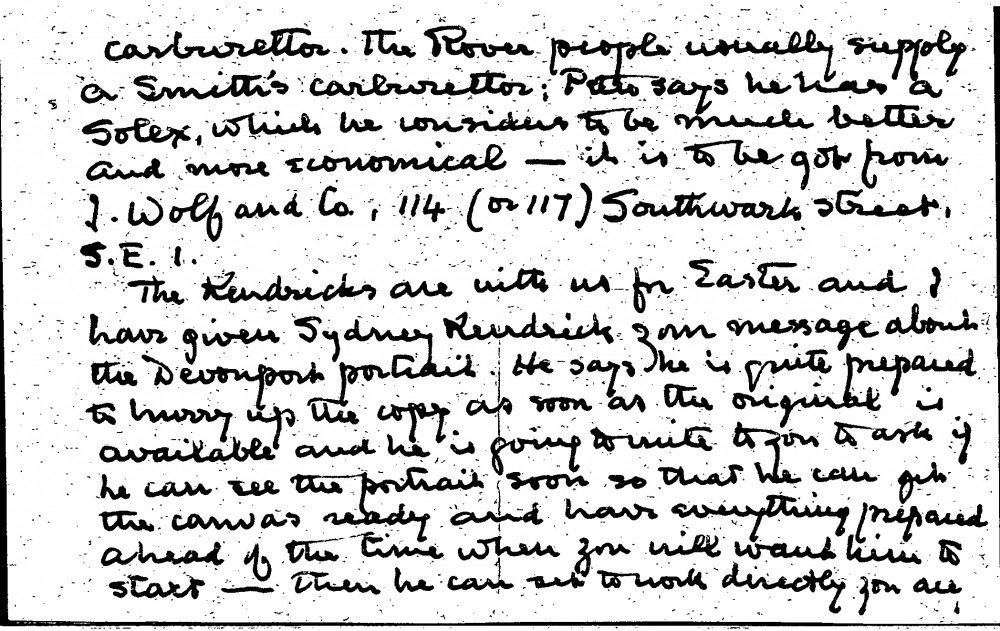 carburettor. The Rover people usually supply
a Smith's carburettor; Pato says he has a
Solex, which he considers to be much better
and more economical — it is to be got from
J. Wolf and Co., 114 (or 117) Southwark street,
S.E. 1.
The Kendricks are with us for Easter and I
have given Sydney Kendrick your message about
the Devonport portrait. He says he is quite prepared
to hurry up the copy as soon as the original is
available and he is going to write to you to ask if
he can see the portrait soon so that he can get
the canvas ready and have everything prepared
ahead of the time when you will want him to
start — then he can set to work directly you are